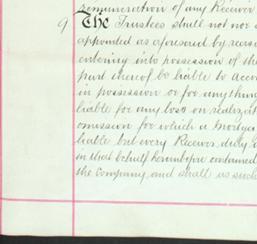 remuneration of any Receiver
9 The Trustees shall not nor
appointed as aforesaid by reason
entering into possession of the
part thereof be liable to account
in possession or for anything
liable for any loss on realizat
omission for which a Mortga
liable but every Receiver duly a
in that behalf hereinbefore contained
the Company and shall as such